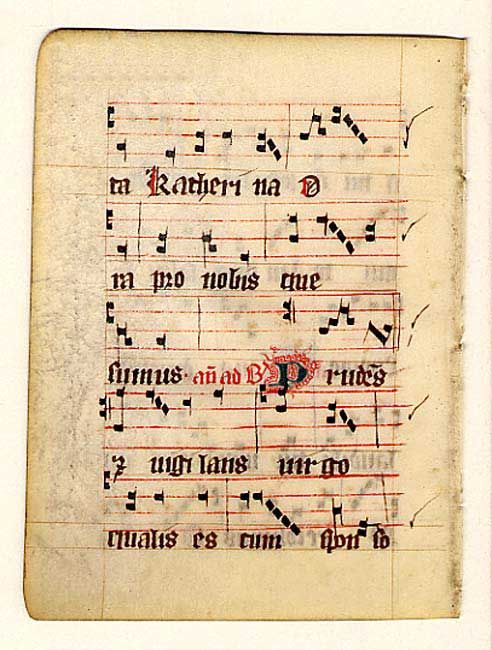 ta Katheri na O
ra pro nobis que
sumus. an̄ ad B Prudēs
⁊ uigi lans uir go
qualis es cum spon so